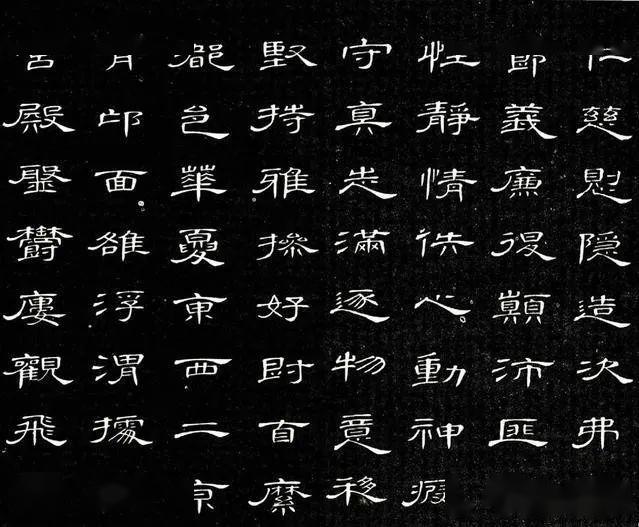 仁慈惻隱造次弗
節義廉退顛沛匪
性靜情逸心動神疲
守真志滿逐物意移
堅持雅操好爵自縻
都邑華夏東西二京
背邙面洛浮渭據
宮殿盤鬱樓觀飛